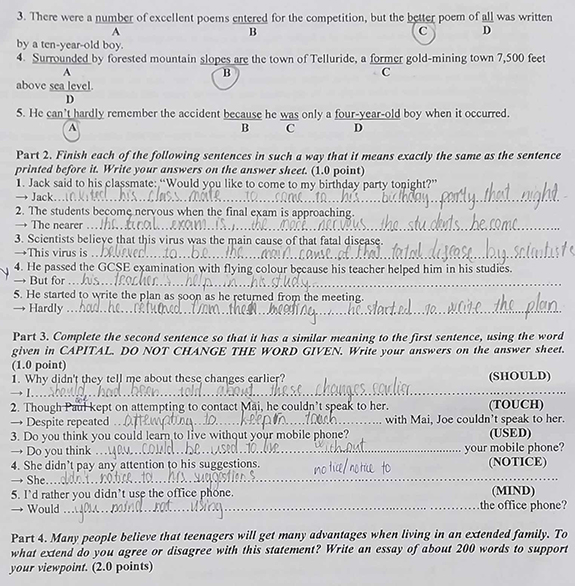 3. There were a number of excellent poems entered for the competition, but the better poem of all was written
A B C D
by a ten-year-old boy.
4. Surrounded by forested mountain slopes are the town of Telluride, a former gold-mining town 7,500 feet
A B C
above sea level.
D
5. He can't hardly remember the accident because he was only a four-year-old boy when it occurred.
A B C D
Part 2. Finish each of the following sentences in such a way that it means exactly the same as the sentence
printed before it. Write your answers on the answer sheet. (1.0 point)
1. Jack said to his classmate: "Would you like to come to my birthday party tonight?"
→ Jack invited his classmate to come to his birthday party that night.
2. The students become nervous when the final exam is approaching.
→ The nearer the final exam is, the more nervous the students become
3. Scientists believe that this virus was the main cause of that fatal disease.
→This virus is believed to be the main cause of that fatal disease by scientists
4. He passed the GCSE examination with flying colour because his teacher helped him in his studies.
→ But for his teacher's help in his study
5. He started to write the plan as soon as he returned from the meeting.
→ Hardly had he returned from the meeting, he started to write the plan.
Part 3. Complete the second sentence so that it has a similar meaning to the first sentence, using the word
given in CAPITAL. DO NOT CHANGE THE WORD GIVEN. Write your answers on the answer sheet.
(1.0 point)
1. Why didn't they tell me about these changes earlier? (SHOULD)
→ I should had been told about these changes earlier
2. Though Paul kept on attempting to contact Mai, he couldn't speak to her. (TOUCH)
→ Despite repeated attempting to keep in touch with Mai, Joe couldn't speak to her.
3. Do you think you could learn to live without your mobile phone? (USED)
→ Do you think you could be used to live without your mobile phone?
4. She didn't pay any attention to his suggestions. notice/notice to (NOTICE)
→ She didn't notice to his suggestions
5. I'd rather you didn't use the office phone. (MIND)
→ Would you mind not using the office phone?
Part 4. Many people believe that teenagers will get many advantages when living in an extended family. To
what extend do you agree or disagree with this statement? Write an essay of about 200 words to support
your viewpoint. (2.0 points)